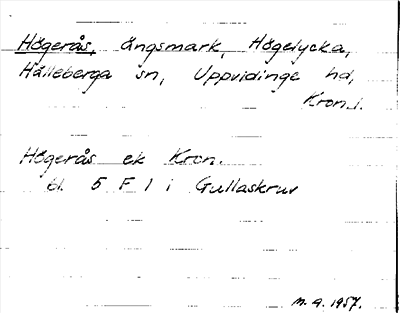 Högerås, ängsmark, Högelycka,
Hälleberga sn, Uppvidinge hd,
Kron.l.
Högerås ek Kron.
bl. 5 F 1 i Gullaskruv
M.A. 1957.